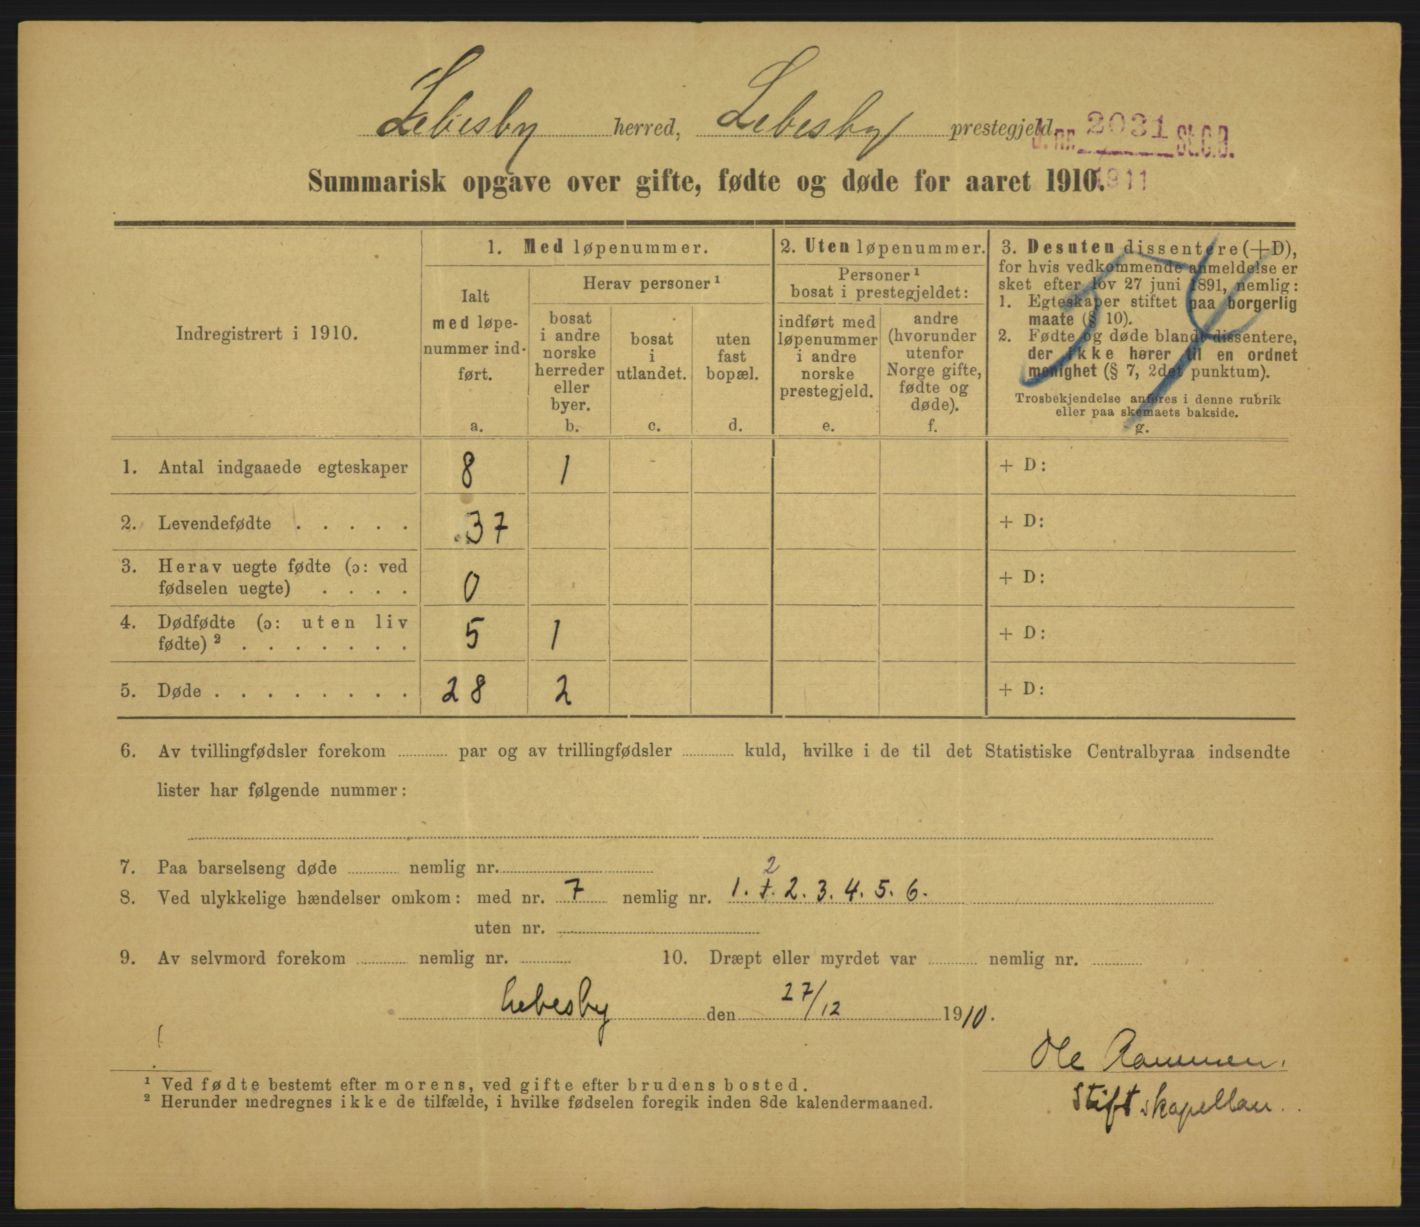 Lebesby herred, Lebesby prestegjeld.
J. nr. 2031 St.C.B.
1911
Summarisk opgave over gifte, fødte og døde for aaret 1910.
Indregistrert i 1910.
1. Med løpenummer.
Ialt
med løpe-
nummer ind-
ført.
a.
Herav personer ¹
bosat
i andre
norske
herreder
eller
byer.
b.
bosat
i
utlandet.
c.
uten
fast
bopæl.
d.
2. Uten løpenummer.
Personer ¹
bosat i prestegjeldet:
indført med
løpenummer
i andre
norske
prestegjeld.
e.
andre
(hvorunder
utenfor
Norge gifte,
fødte og
døde).
f.
3. Desuten dissentere (+D),
for hvis vedkommende anmeldelse er
sket efter lov 27 juni 1891, nemlig:
1. Egteskaper stiftet paa borgerlig
maate (§ 10).
2. Fødte og døde blandt dissentere,
der ikke hører til en ordnet
menighet (§ 7, 2det punktum).
Trosbekjendelse anføres i denne rubrik
eller paa skemaets bakside.
g.
1. Antal indgaaede egteskaper 8 1 + D:
2. Levendefødte . . . . . 37 + D:
3. Herav uegte fødte (ɔ: ved
fødselen uegte) . . . . 0 + D:
4. Dødfødte (ɔ: uten liv
fødte) ² . . . . . . . 5 1 + D:
5. Døde . . . . . . . . 28 2 + D:
6. Av tvillingfødsler forekom ............ par og av trillingfødsler ............ kuld, hvilke i de til det Statistiske Centralbyraa indsendte
lister har følgende nummer:
7. Paa barselseng døde ............ nemlig nr.
2
8. Ved ulykkelige hændelser omkom: med nr. 7 nemlig nr. 1. 1. 2. 3. 4. 5. 6.
uten nr.
9. Av selvmord forekom ............ nemlig nr. ............ 10. Dræpt eller myrdet var ............ nemlig nr. ............
Lebesby den 27/12 1910.
Ole Rammen.
Stiftskapellan.
¹ Ved fødte bestemt efter morens, ved gifte efter brudens bosted.
² Herunder medregnes ikke de tilfælde, i hvilke fødselen foregik inden 8de kalendermaaned.